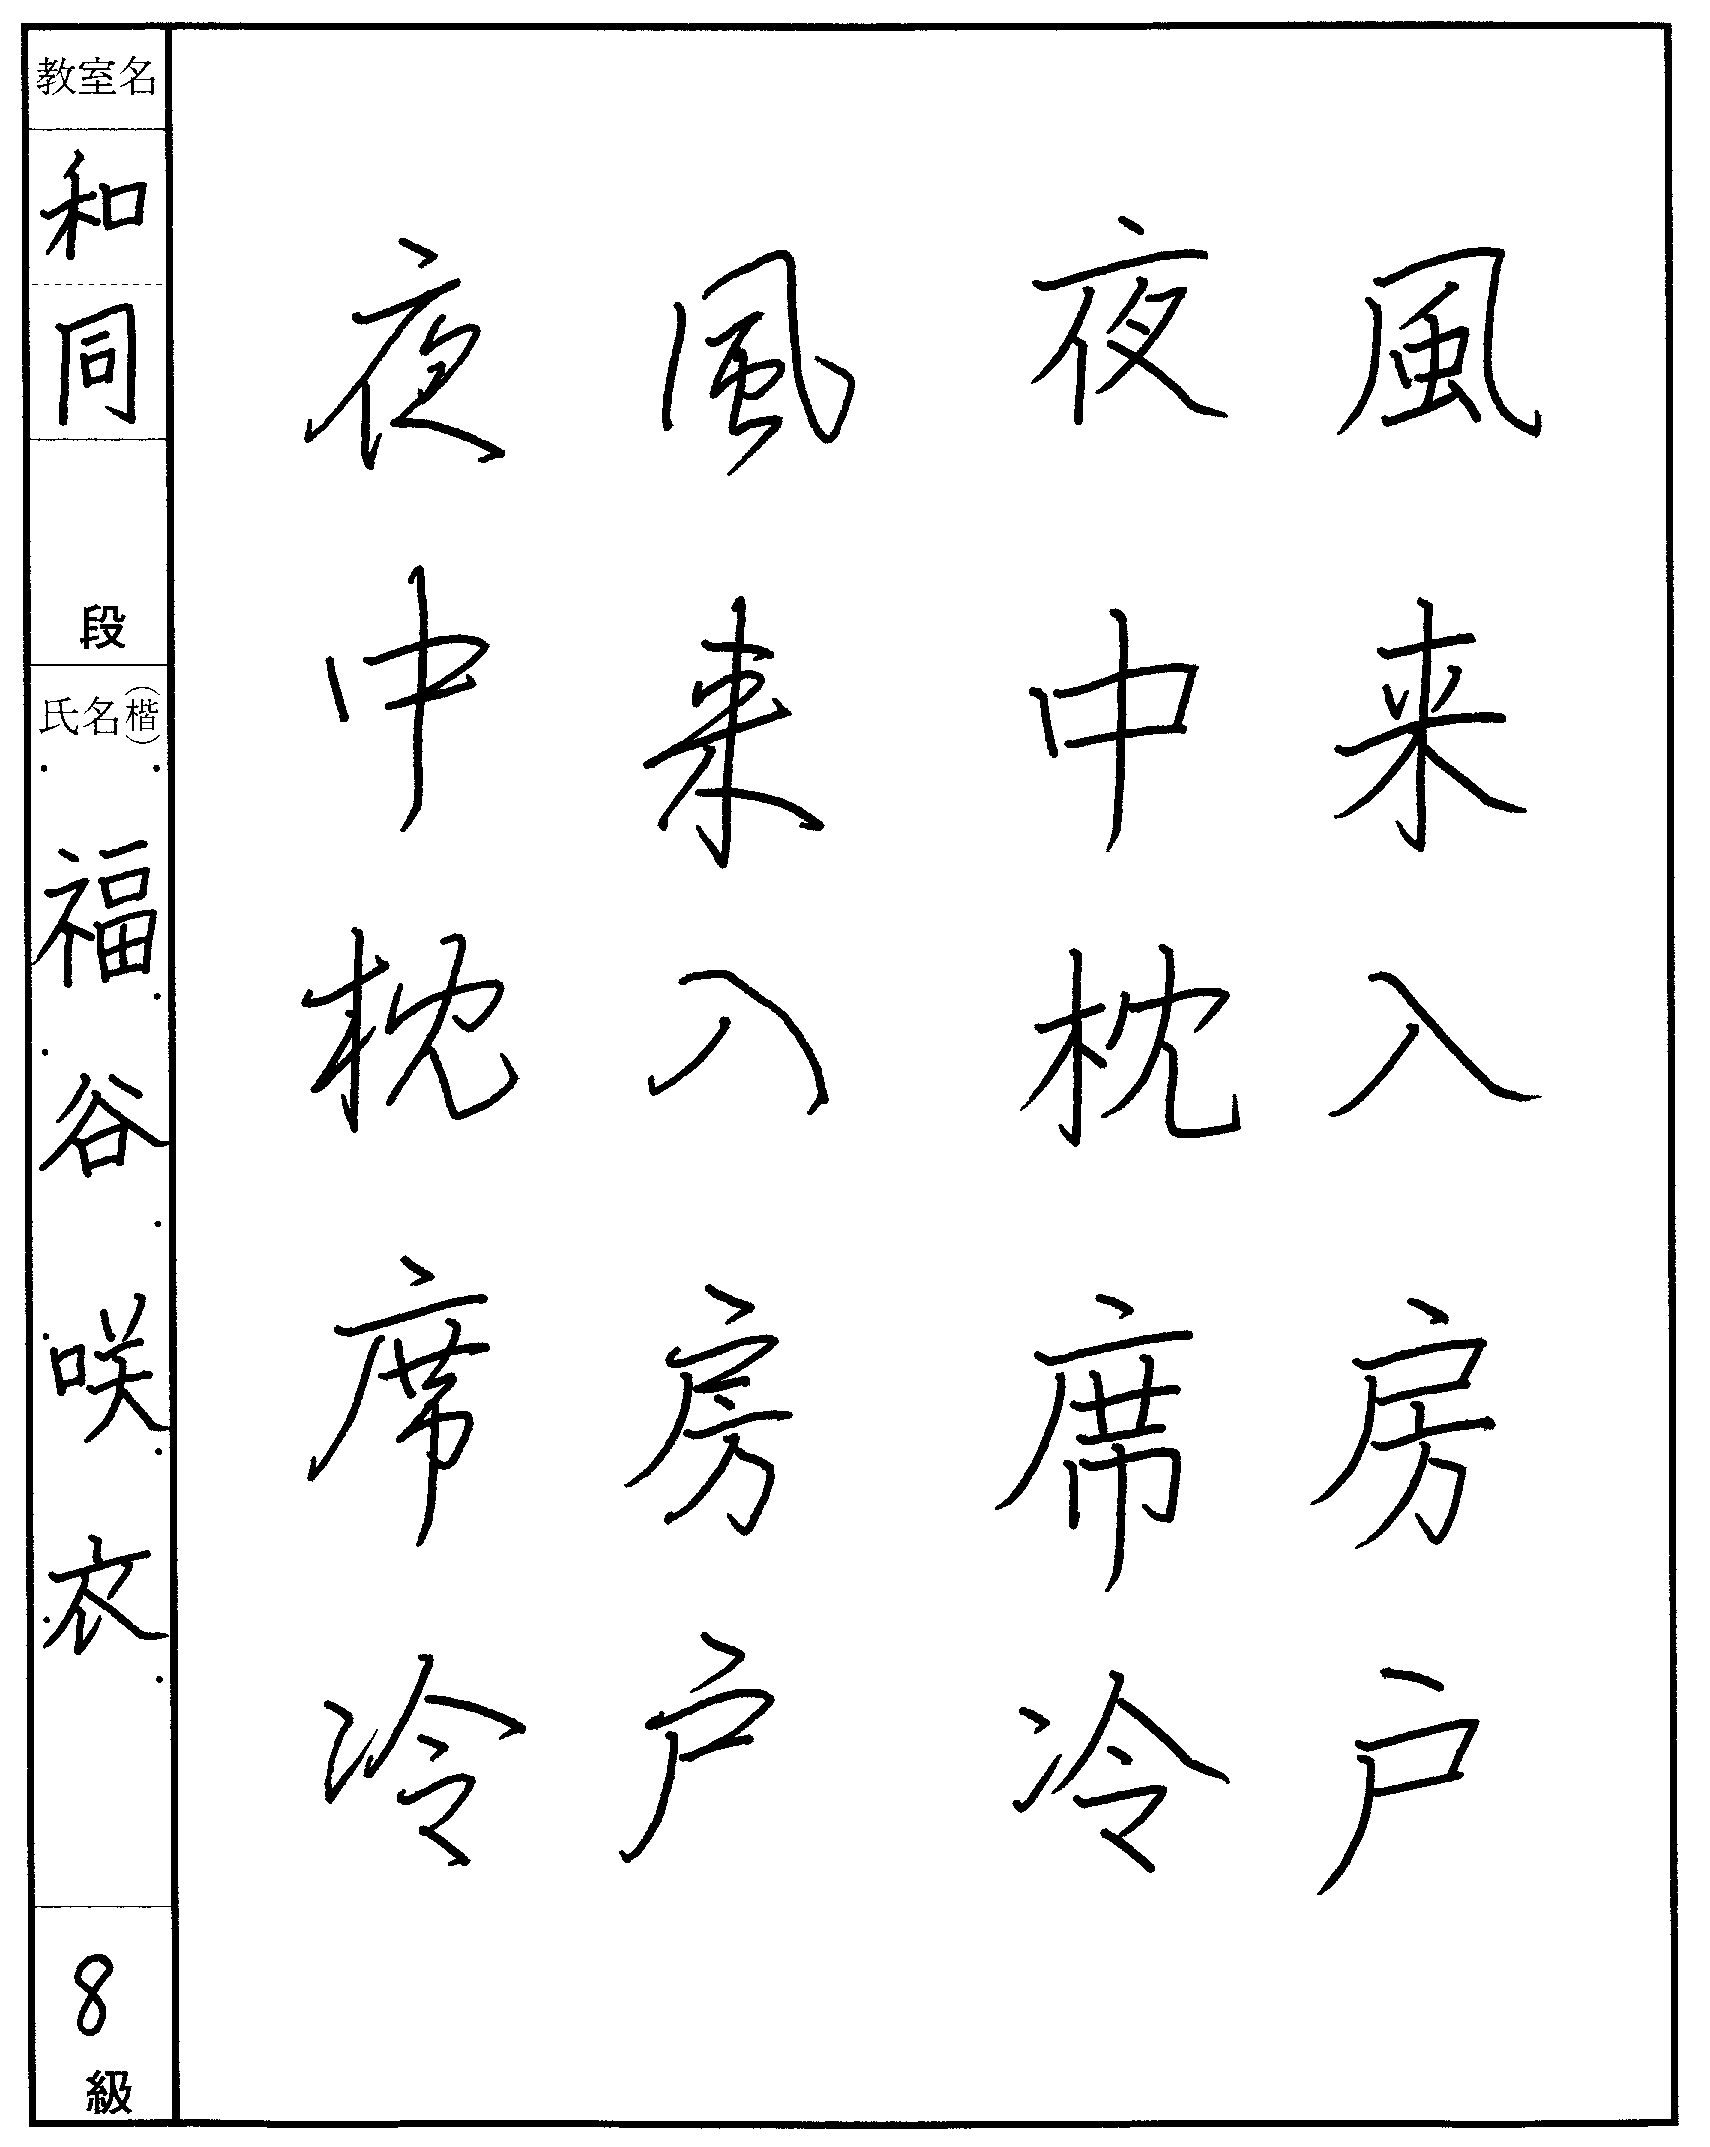 風来入房戸
夜中枕席冷
風来入房戸
夜中枕席冷
教室名
和同
段
氏名(楷)
福谷咲衣
8級